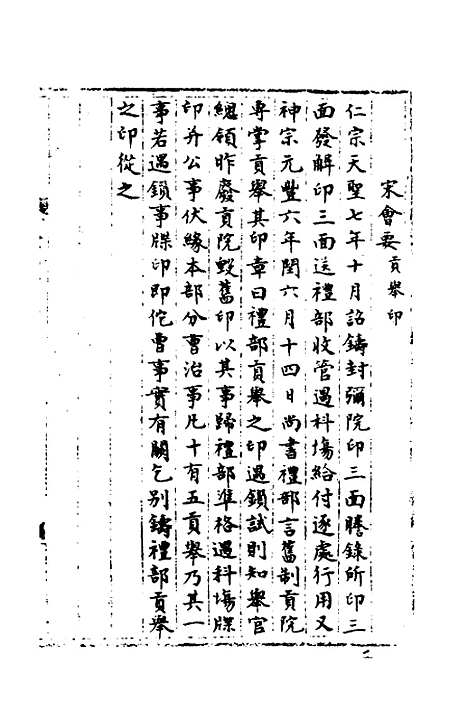 宋會要貢舉印
仁宗天聖七年十月詔鑄封彌院印三面謄錄所印三
面發解印三面送禮部收管遇科塲給付逐處行用又
神宗元豐六年閏六月十四日尚書禮部言舊制貢院
專掌貢舉其印章曰禮部貢舉之印遇鎖試則知舉官
緫領昨廢貢院毀舊印以其事歸禮部準格遇科塲牒
印并公事伏緣本部分曹治事凡十有五貢舉乃其一
事若遇鎖事牒印即佗曹事實有闕乞別鑄禮部貢舉
之印從之